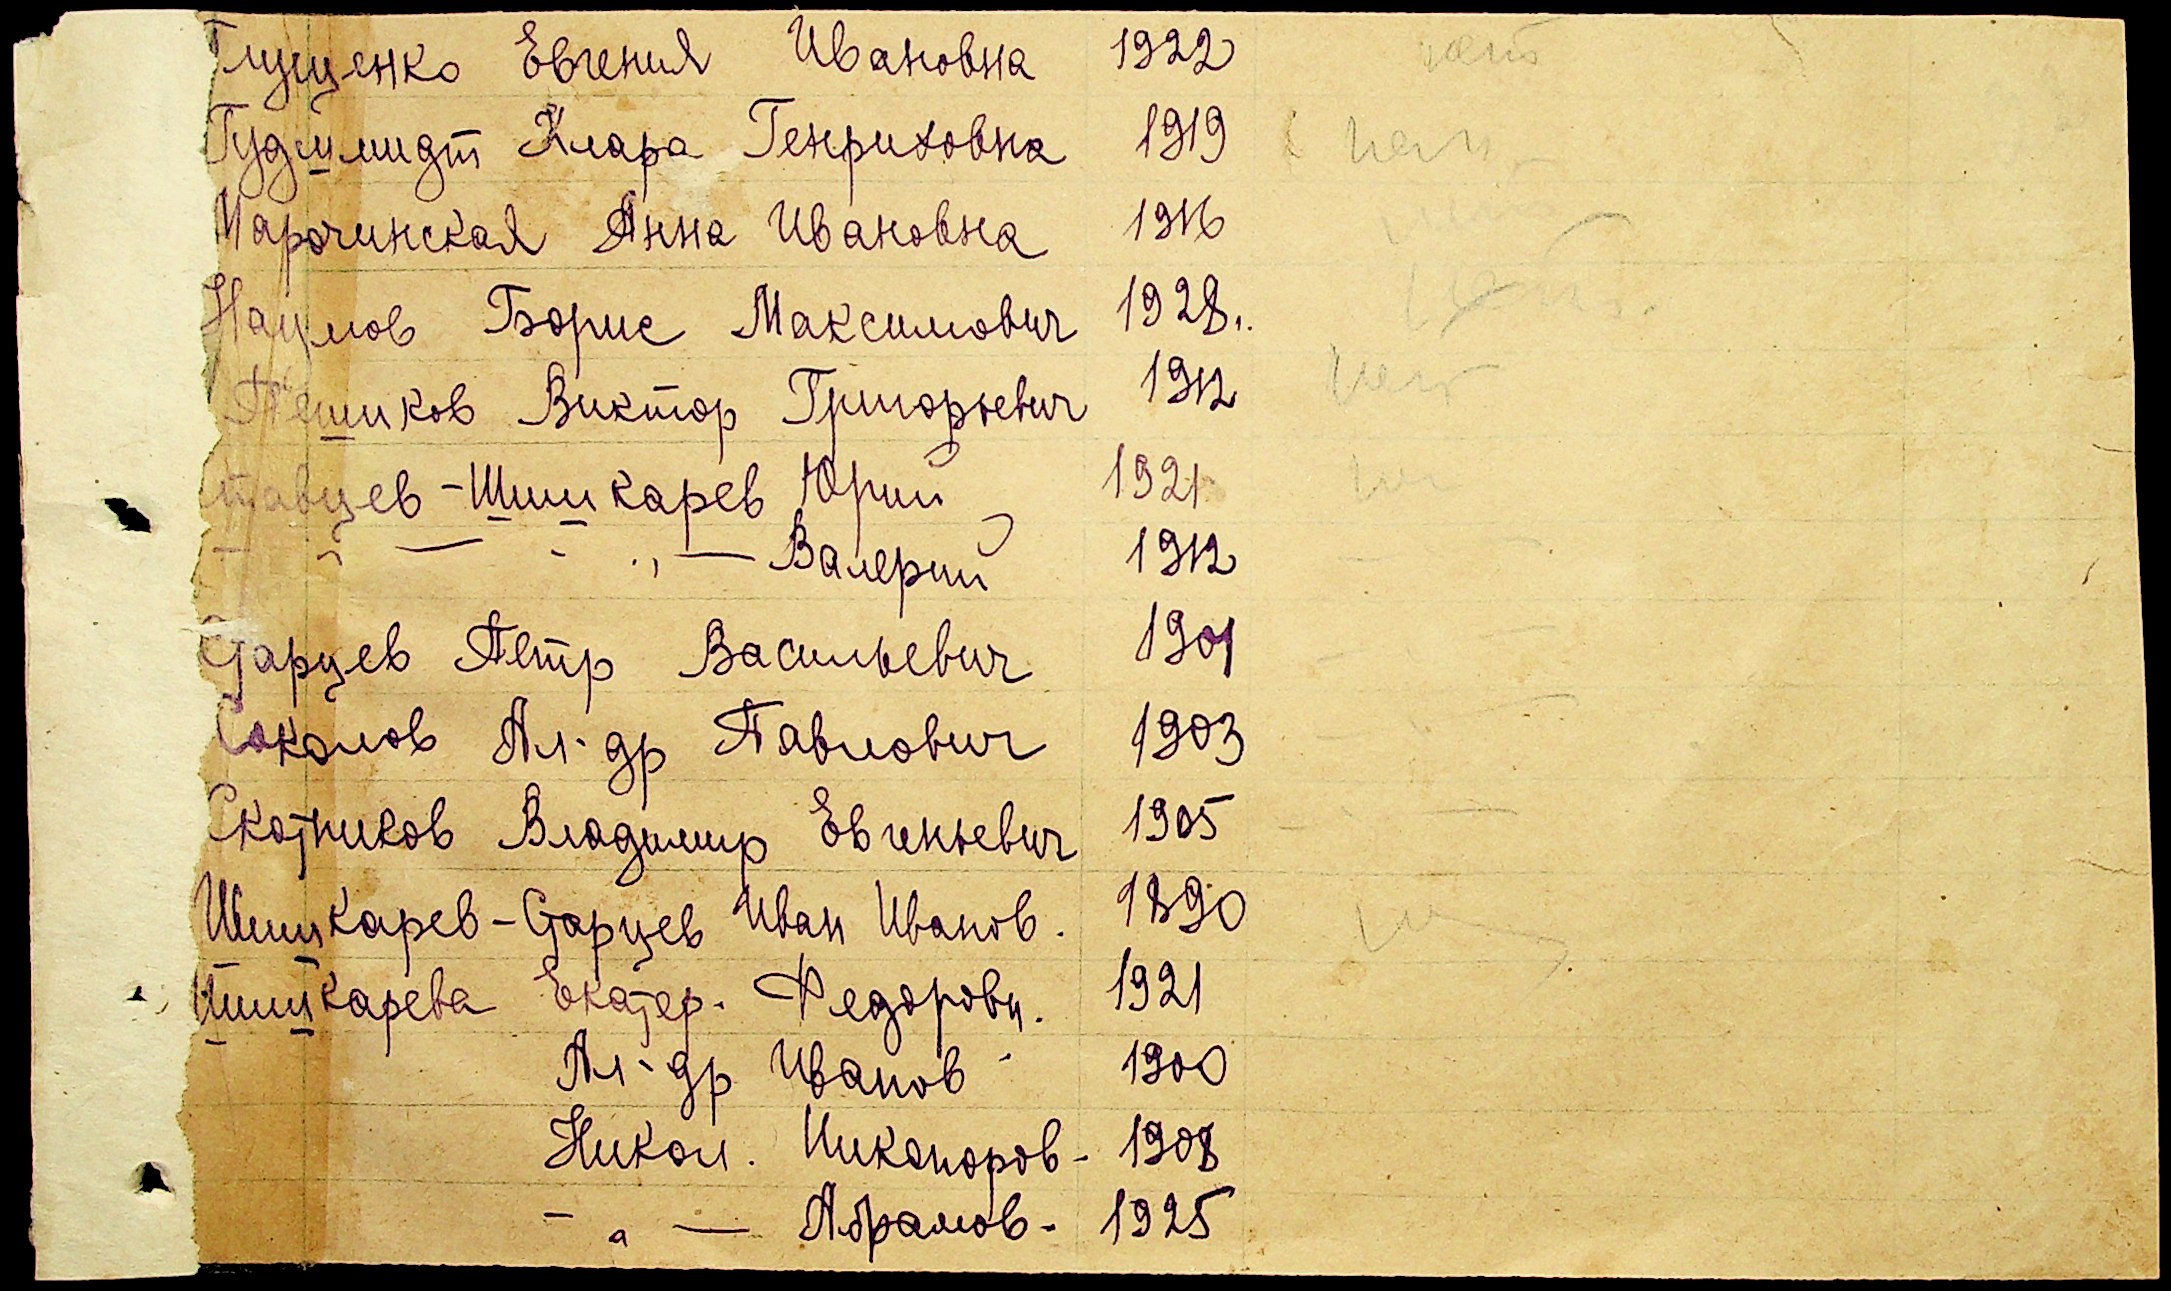 Глущенко Евгения Ивановна 1922 нет
Гудшмидт Клара Генриховна 1919 нет
Марочинская Анна Ивановна 1916
Наумов Борис Максимович 1928.
Пешиков Виктор Григорьевич 1912 нет
-Шишкарев Юрий 1921
— " — " — Валерий 1912
Старцев Петр Васильевич 1901
Соколов Ал-др Павлович 1903
Скотников Владимир Евгеньевич 1905
Шишкарев-Старцев Иван Иванов. 1890
Шишкарева Екатер. Федоровн. 1921
Ал-др Иванов 1900
Никол. Никаноров- 1908
— " — Абрамов- 1925